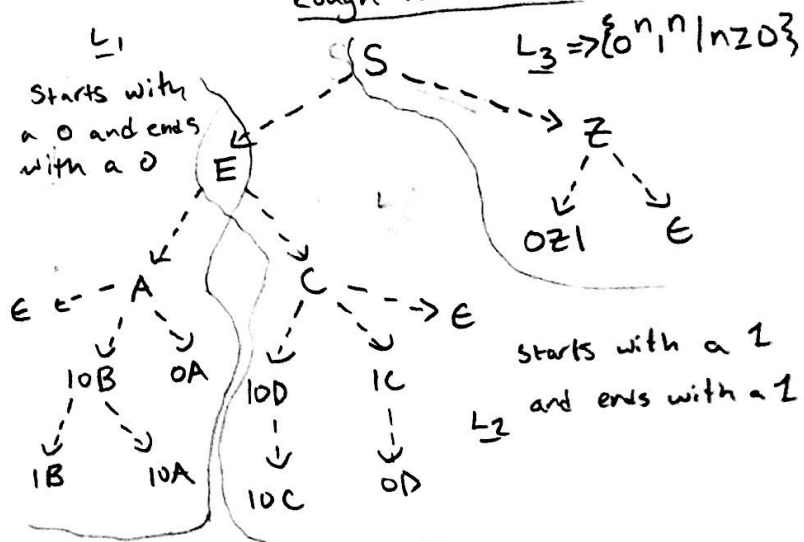 L1
Starts with
a 0 and ends
with a 0
S
L3 => {0^n 1^n | n ≥ 0}
E
Z
0Z1
ε
A
C
ε
ε
10B
0A
10D
1C
1B
10A
10C
0D
starts with a 1
L2 and ends with a 1